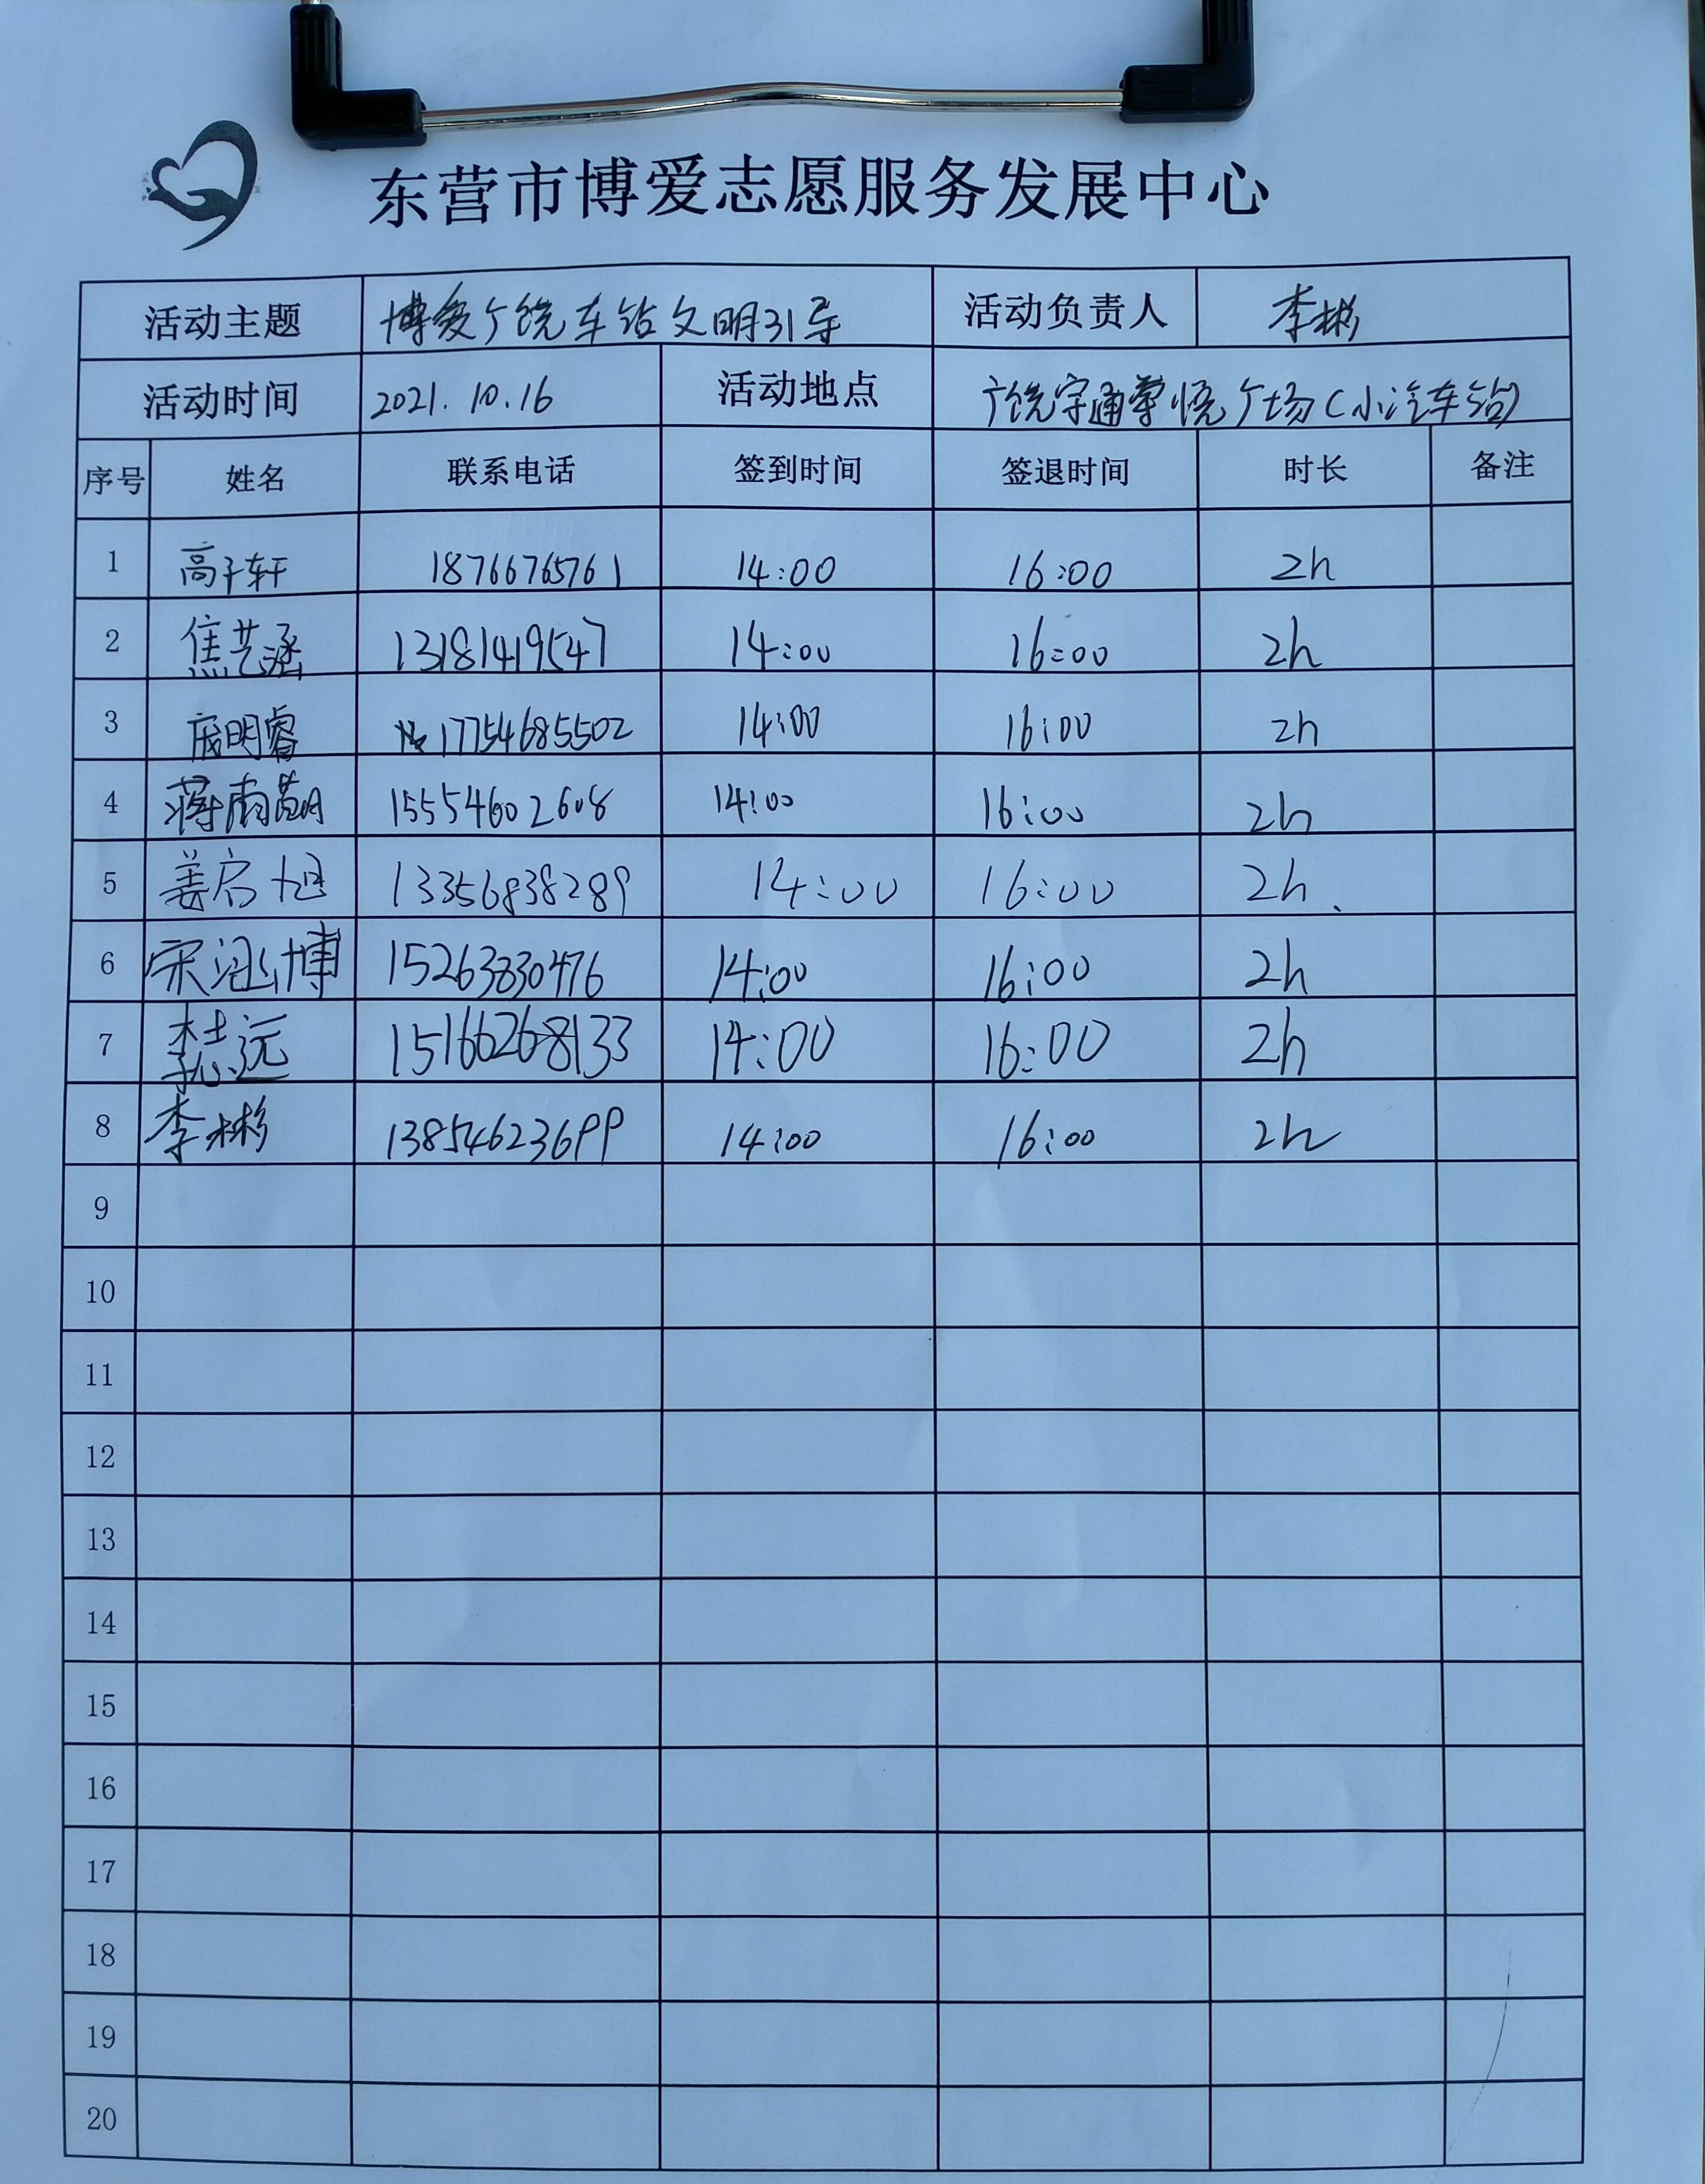 东营市博爱志愿服务发展中心
活动主题 博爱广饶车站文明引导 活动负责人 李彬
活动时间 2021.10.16 活动地点 广饶宇通尊悦广场(小汽车站)
序号 姓名 联系电话 签到时间 签退时间 时长 备注
1 高子轩 18766765761 14:00 16:00 2h
2 焦艺涵 13181419547 14:00 16:00 2h
3 明睿 17754685502 14:00 16:00 2h
4 蒋雨 15554602608 14:00 16:00 2h
5 姜启旭 13356838289 14:00 16:00 2h
6 宋博 15263830476 14:00 16:00 2h
7 李志远 15166268133 14:00 16:00 2h
8 李彬 13854623699 14:00 16:00 2h
9
10
11
12
13
14
15
16
17
18
19
20